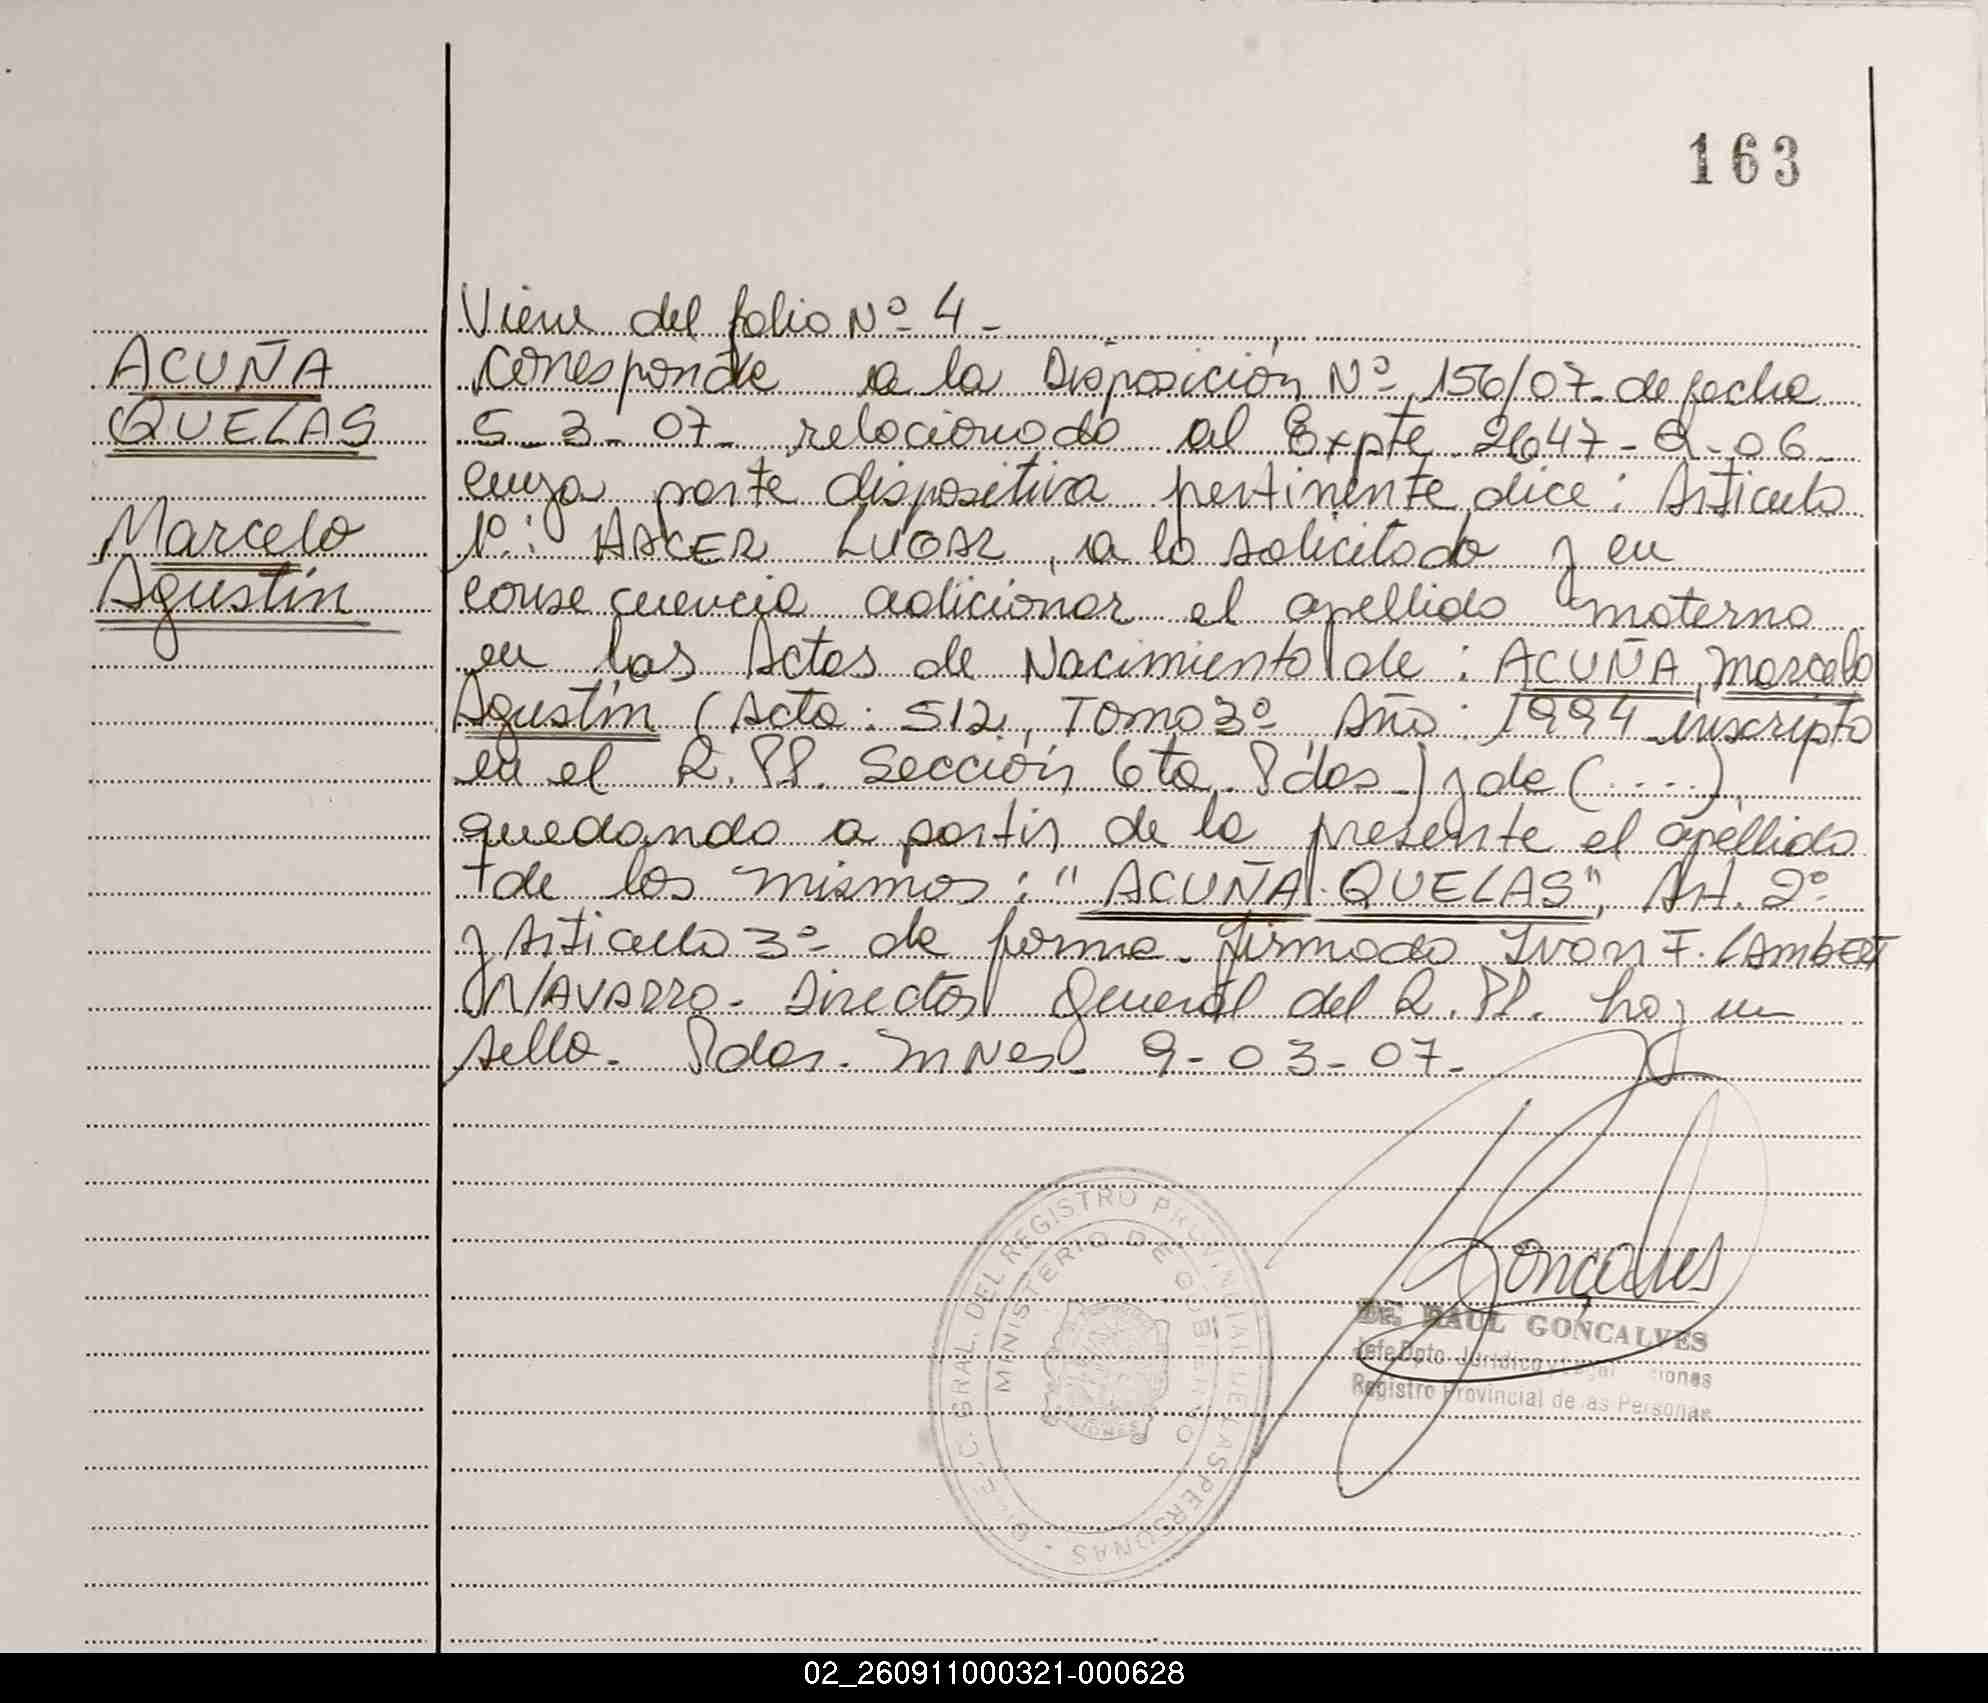 163
Viene del folio Nº 4 -
ACUÑA
QUELAS
Marcelo
Agustín
Corresponde a la Disposición Nº 156/07 - de fecha
5-3-07- relacionado al Expte 2647-Q-06
cuya parte dispositiva pertinente dice: Articulo
1º: HACER LUGAR, a lo solicitado y en
consecuencia adicionar el apellido materno
en las Actas de Nacimiento de: ACUÑA, Marcelo
Agustín (Acta: 512, Tomo 3º Año: 1994 inscripto
en el R.PP. Sección 6ta. Pdas.) y de (....),
quedando a partir de la presente el apellido
de los mismos: "ACUÑA QUELAS", Art. 2º
y Articulo 3º de forma. firmado Ivon F. LAMBERT
NAVARRO - Director General del R.PP. hay un
sello - Pdas. Mnes - 9-03-07-
C. GRAL. DEL REGISTRO PROVINCIAL DE LAS PERSONAS
MINISTERIO DE GOBIERNO
MISIONES
Gonçalves
Dr. RAUL GONÇALVES
Jefe Dpto Jurídico y
Registro Provincial de las Personas
02_260911000321-000628